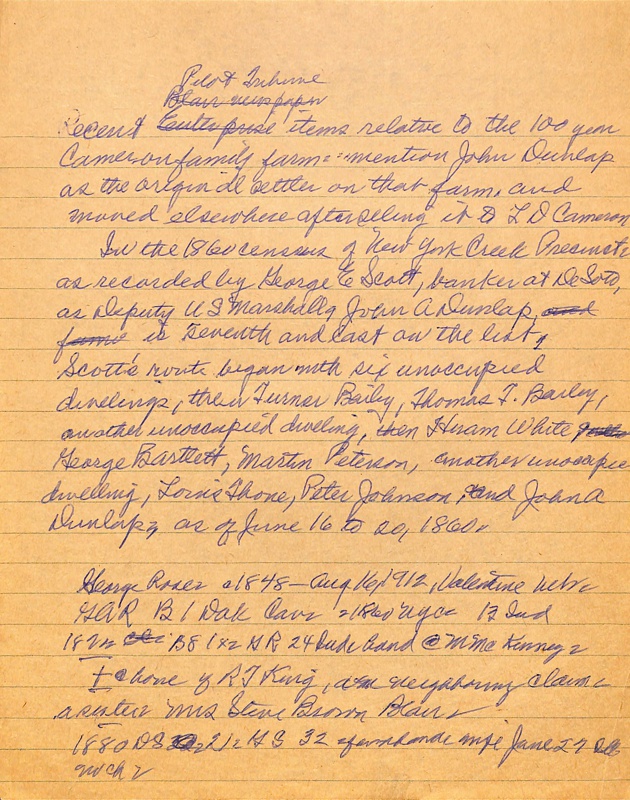 Pilot Tribune
Blair newspaper
Recent Enterprise items relative to the 100 year
Cameron family farm mention John Dunlap
as the original settler on that farm, and
moved elsewhere after selling it to L D Cameron
In the 1860 census of New York Creek Precinct
as recorded by George E Scott, banker at DeSoto,
as Deputy US Marshall, John A Dunlap, and
is seventh and last on the list,
Scott's route began with six unoccupied
dwelings, then Turner Baily, Thomas T. Bailey,
another unoccupied dweling, then Hiram White
George Bartlett, Martin Peterson, another unoccupied
dwelling, Louis Thone, Peter Johnson, and John A
Dunlap, as of June 16 to 20, 1860.
George Rosez 1848 - Aug 1912, Valentine Nebr
GAR B 1 Dak Cav 1860 17 Ind
B8 GR 24 @ McKenney
home of R T King, neighboring claim
a sister Mrs Steve Brown Blair
1880 DS 32 farmhand wife Jane 27